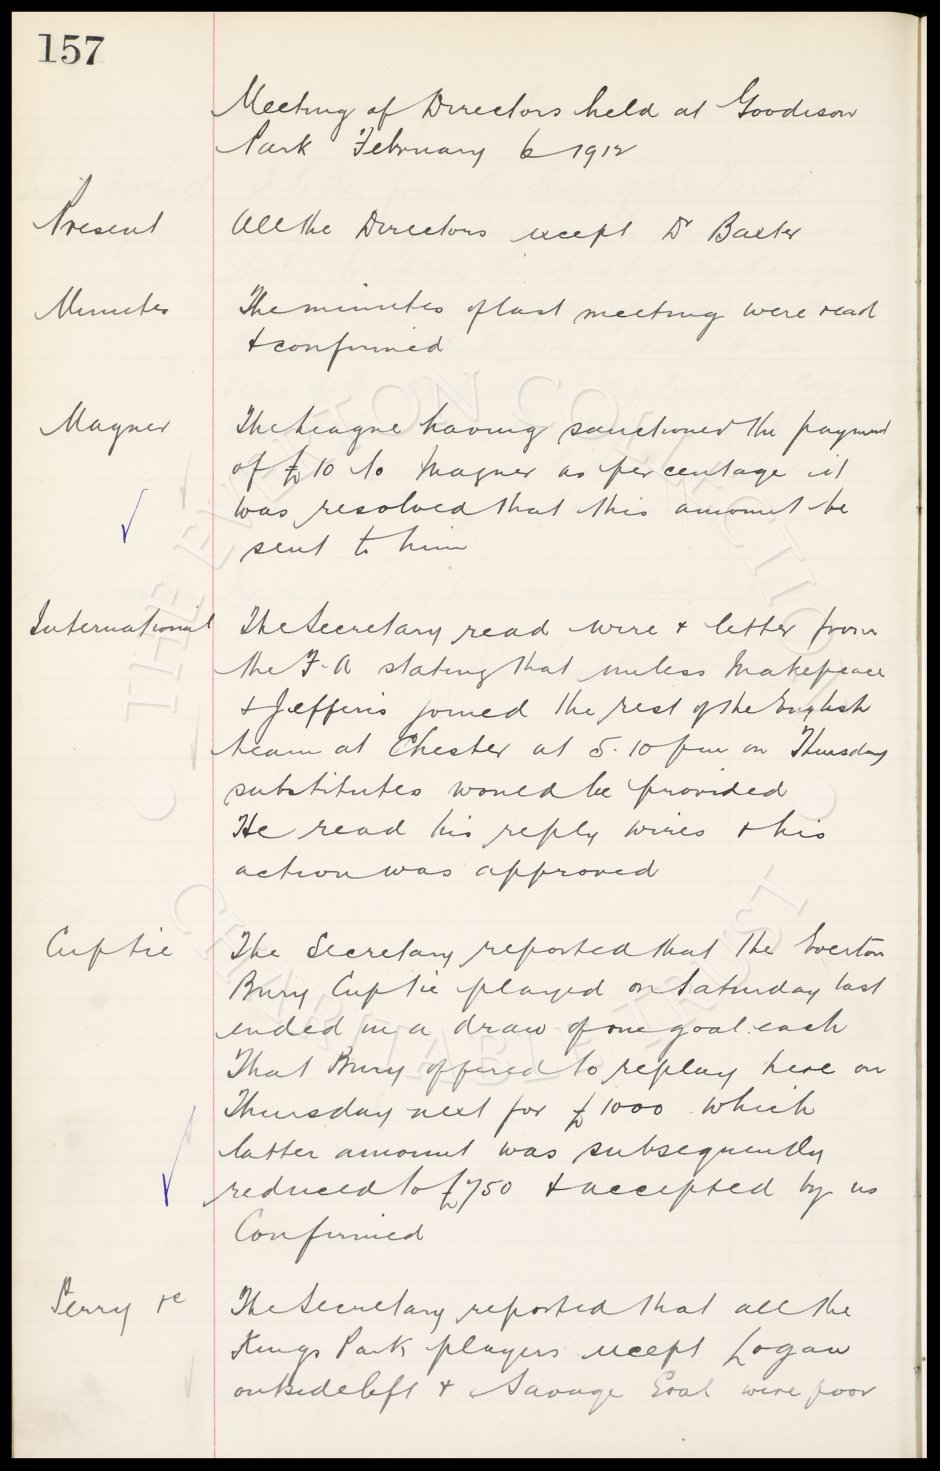 157
Meeting of Directors held at Goodison
Park February 6 1912
Present All the Directors except Dr Baxter
Minutes The minutes of last meeting were read
& confirmed
Magner The League having sanctioned the payment
of £10 to Magner as percentage it
was resolved that this amount be
sent to him
International The Secretary read wire & letter from
the F.A stating that unless Makepeace
& Jefferis joined the rest of the English
team at Chester at 5.10 pm on Thursday
substitutes would be provided
He read his reply wires & his
action was approved
Cup tie The Secretary reported that the Everton
Bury Cup tie played on Saturday last
ended in a draw of one goal each
That Bury offered to replay here on
Thursday next for £1000 which
latter amount was subsequently
reduced to £750 & accepted by us
Confirmed
Perry &c The Secretary reported that all the
Kings Park players except Logan
outside left & Savage Goal were poor
THE EVERTON COLLECTION
CHARITABLE TRUST